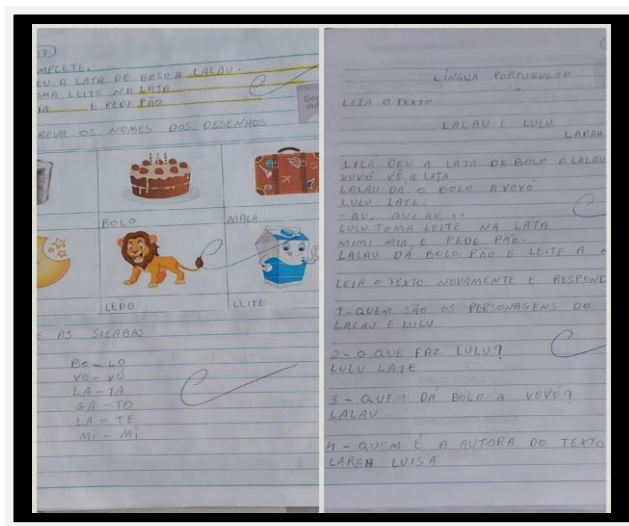 MPLETE.
EU A LATA DE BOLO A LALAU.
OMA LEITE NA LATA
IA E PEDE PÃO
REVA OS NOMES DOS DESENHOS
BOLO
MALA
LEÃO
LEITE
E AS SILABAS
BO - LO
VO - VÓ
LA - TA
GA - TO
LA - TE
MI - MI
LÍNGUA PORTUGUESA
LEIA O TEXTO
LALAU E LULU
LARAH
LILA DEU A LATA DE BOLO A LALAU
VOVÓ VÊ A LATA
LALAU DÁ O BOLO A VOVÓ
LULU LATE:
- AU, AU, AU...
LULU TOMA LEITE NA LATA
MIMI MIA E PEDE PÃO.
LALAU DÁ BOLO, PÃO E LEITE A
LEIA O TEXTO NOVAMENTE E RESPOND
1 - QUEM SÃO OS PERSONAGENS DO
LALAU E LULU
2 - O QUE FAZ LULU?
LULU LATE
3 - QUEM DÁ BOLO A VOVÓ?
LALAU
4 - QUEM É A AUTORA DO TEXTO
LARAH LUISA